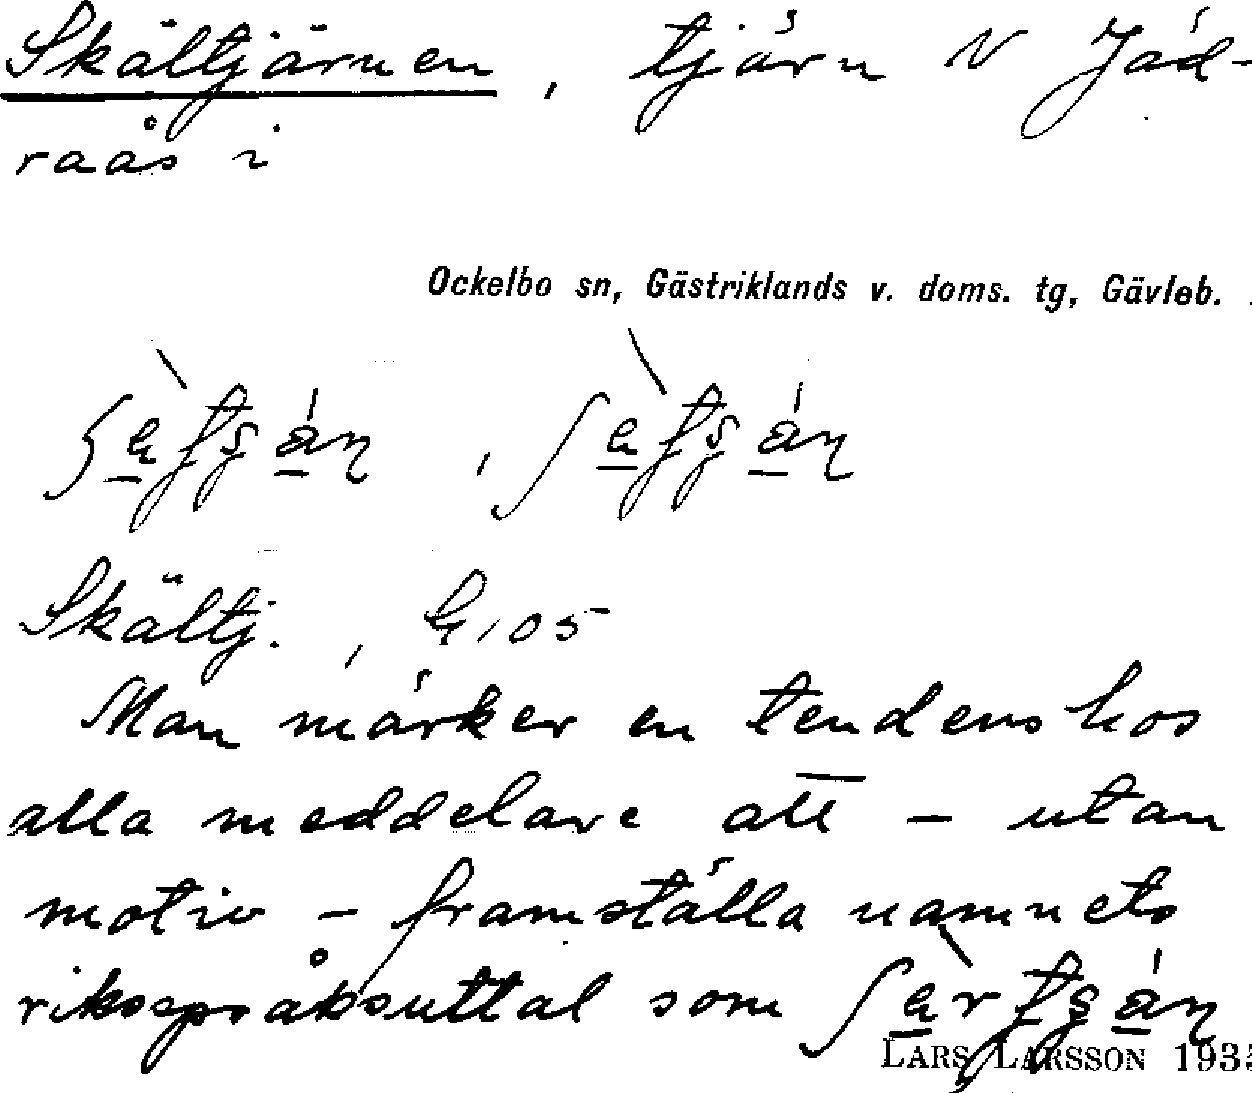 Skältjärnen, tjärn N Jäd-
raås i
Ockelbo sn, Gästriklands v. doms. tg, Gävleb.
Skältj.,
Man märker en tendens hos
alla meddelare att – utan
motiv – framställa namnets
riksspråksuttal som
LARS LARSSON 1935